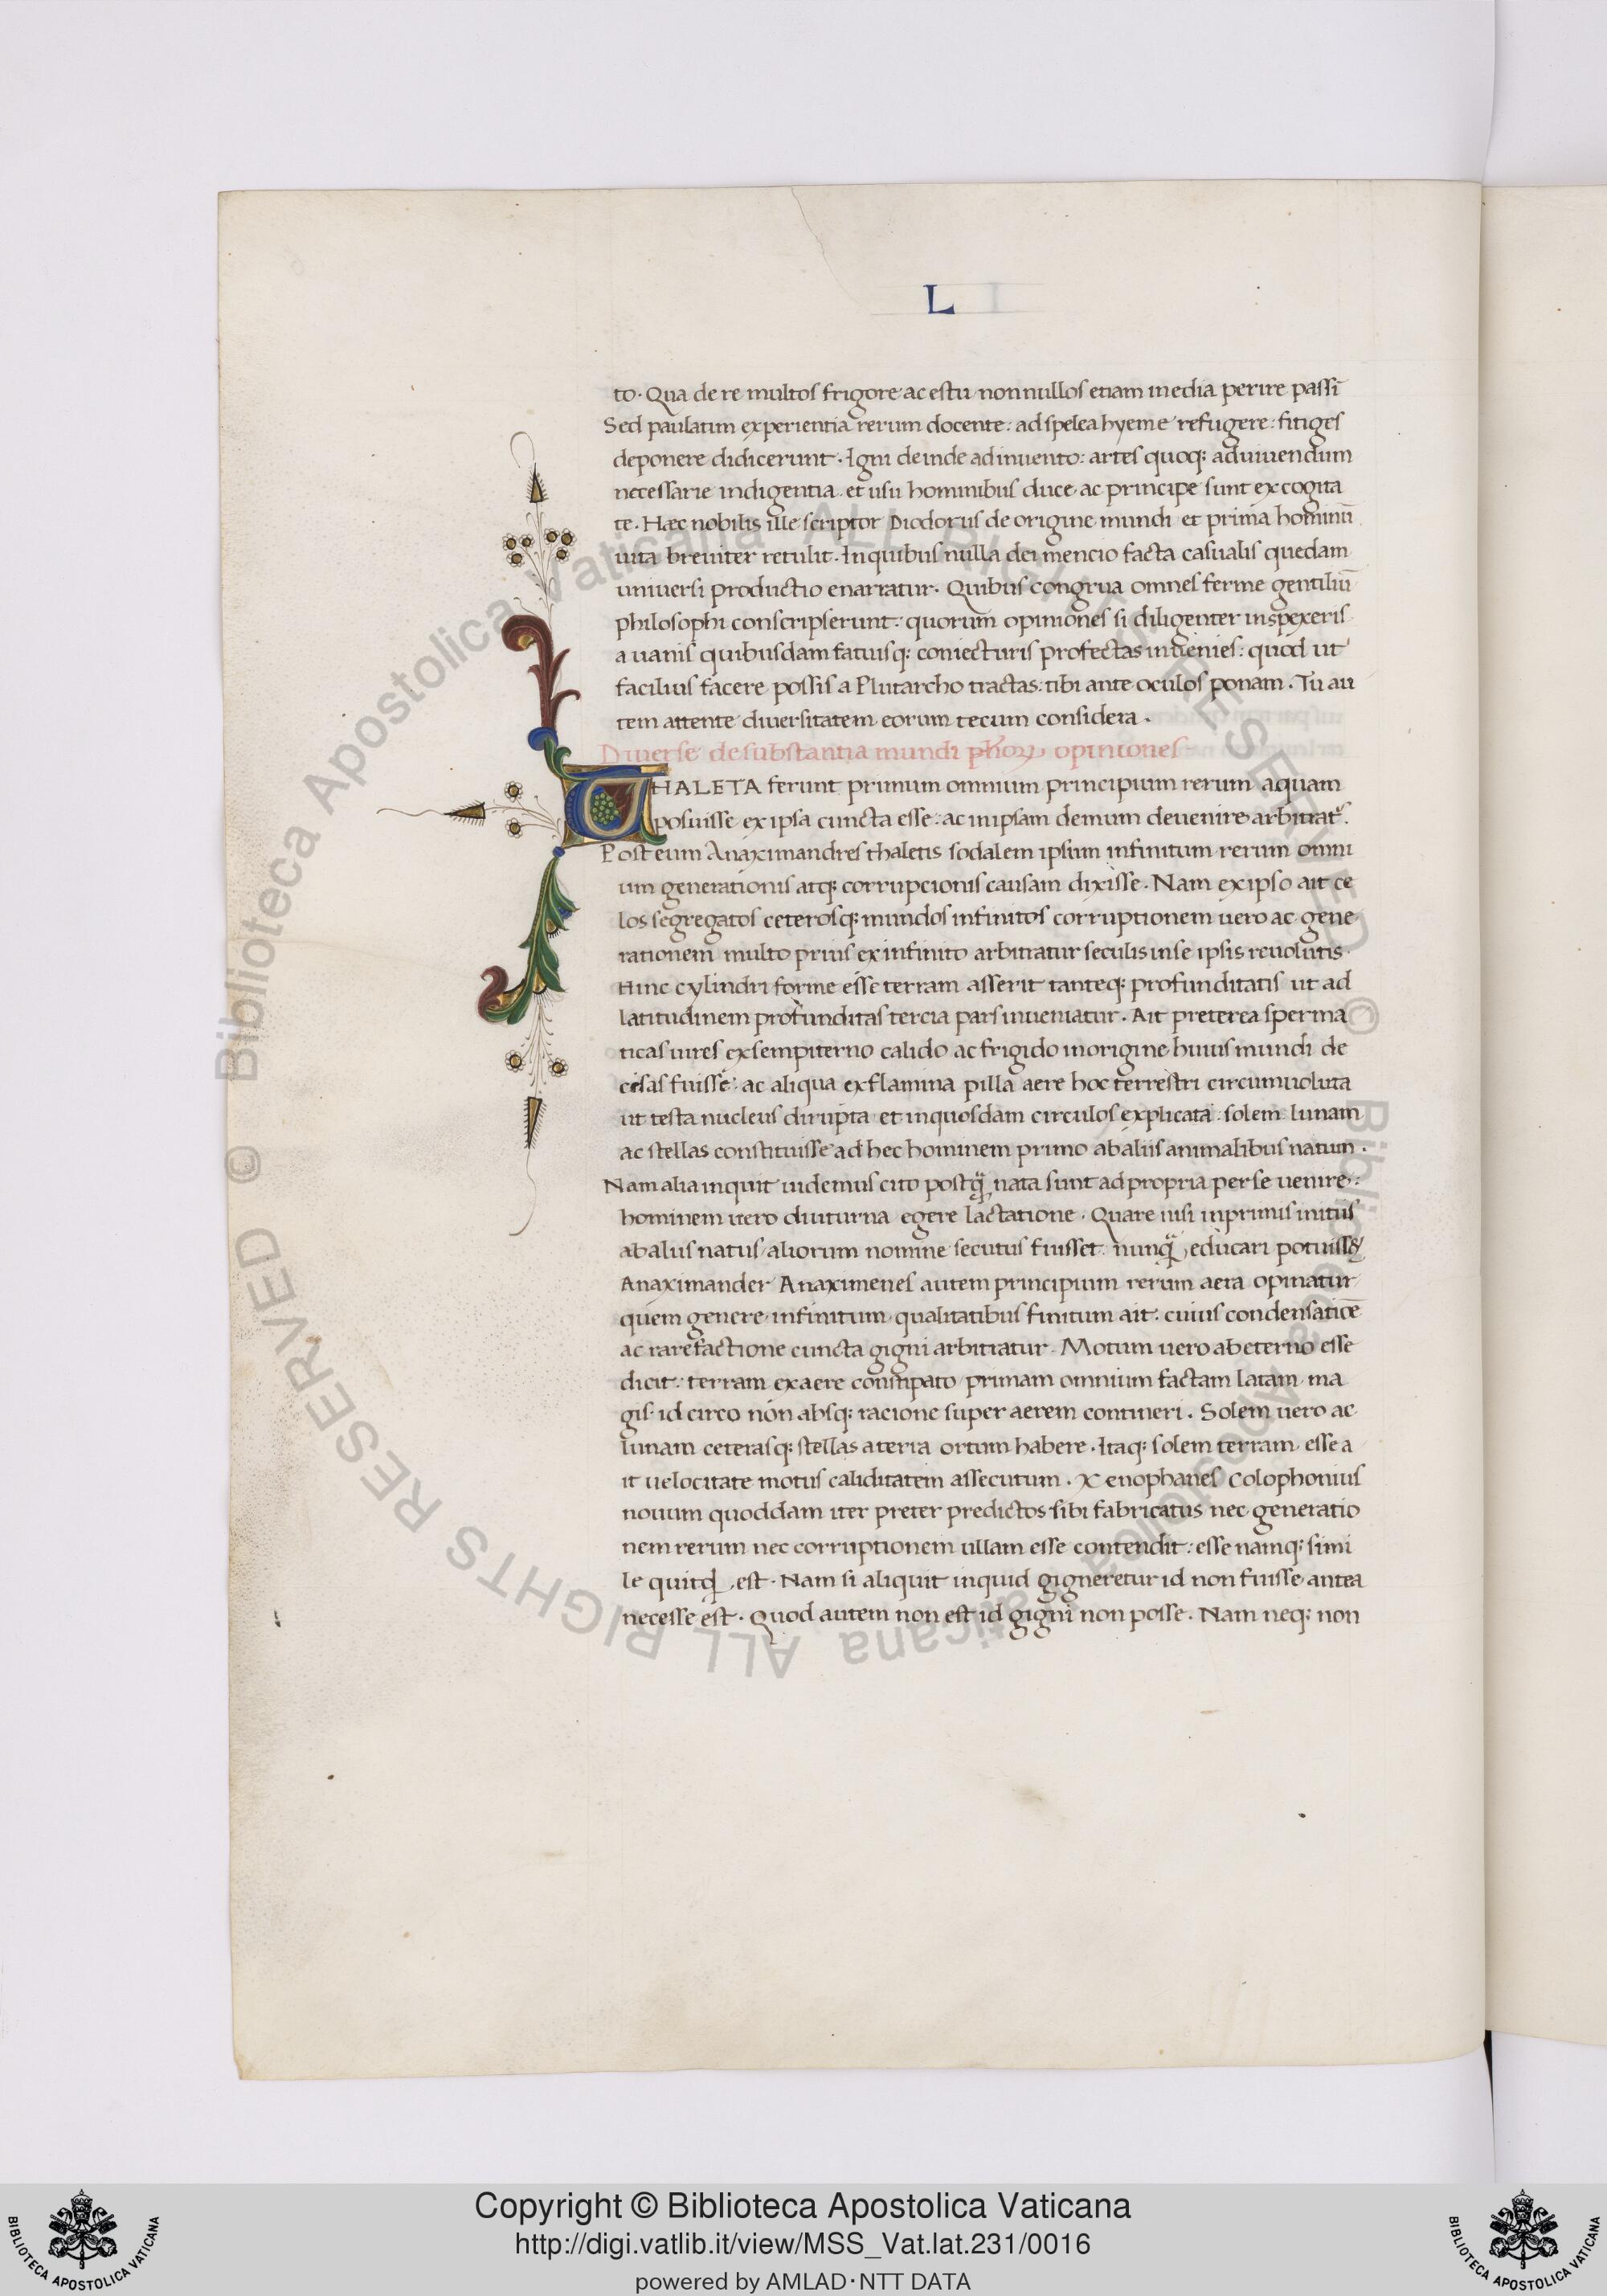 L I
to. Qua de re multos frigore ac estu nonnullos etiam inedia perire passī
Sed paulatim experientia rerum docente: ad spelea hyeme refugere: fitiges
deponere didicerunt. Igni deinde adinuento: artes quoq; ad uiuendum
necessarie indigentia et usu hominibus duce ac principe sunt excogita
te. Hæc nobilis ille scriptor Diodorus de origine mundi et prima hominū
uita breuiter retulit. In quibus nulla dei mencio facta casualis quedam
uniuersi productio enarratur. Quibus congrua omnes ferme gentiliū
philosophi conscripserunt: quorum opiniones si diligenter inspexeris
a uanis quibusdam fatuisq; coniecturis profectas inuenies: quod ut
facilius facere possis a Plutarcho tractas: tibi ante oculos ponam. Tu au
tem attente diuersitatem eorum tecum considera.
Diuerse de substantia mundi phoꝝ opiniones
THALETA ferunt primum omnium principium rerum aquam
posuisse ex ipsa cuncta esse: ac in ipsam demum deuenire arbitrat᷑.
Post eum Anaximandres thaletis sodalem ipsum infinitum rerum omni
um generationis atq; corrupcionis causam dixisse. Nam ex ipso ait ce
los segregatos ceterosq; mundos infinitos corruptionem uero ac gene
rationem multo prius ex infinito arbitratur seculis in se ipsis reuolutis.
Hinc cylindri forme esse terram asserit tanteq; profunditatis ut ad
latitudinem profunditas tercia pars inueniatur. Ait preterea sperma
ticas uires ex sempiterno calido ac frigido in origine huius mundi de
cisas fuisse: ac aliqua ex flamina pilla aere hoc terrestri circumuoluta
ut testa nucleus dirupta et in quosdam circulos explicata: solem lunam
ac stellas constituisse ad hec hominem primo ab aliis animalibus natum.
Nam alia inquit uidemus cito postq̃ nata sunt ad propria per se uenire:
hominem uero diuturna egere lactatione. Quare nisi inprimis initus
ab alus natus aliorum nomine secutus fuisset: nunq̃ educari potuiss&
Anaximander Anaximenes autem principium rerum aera opinatur
quem genere infinitum qualitatibus finitum ait: cuius condensaticē
ac rarefactione cuncta gigni arbitratur. Motum uero ab eterno esse
dicit: terram ex aere constipato primam omnium factam latam ma
gis id circo non absq; racione super aerem contineri. Solem uero ac
lunam ceterasq; stellas a terra ortum habere. Itaq; solem terram esse a
it uelocitate motus caliditatem assecutum. Xenophanes Colophonius
nouum quoddam iter preter predictos sibi fabricatus nec generatio
nem rerum nec corruptionem ullam esse contendit: esse namq; simi
le quitꝙ est. Nam si aliquit inquid gigneretur id non fuisse antea
necesse est. Quod autem non est id gigni non posse. Nam neq; non
© Biblioteca Apostolica Vaticana ALL RIGHTS RESERVED
© Biblioteca Apostolica Vaticana ALL RIGHTS RESERVED
Copyright © Biblioteca Apostolica Vaticana
http://digi.vatlib.it/view/MSS_Vat.lat.231/0016
powered by AMLAD·NTT DATA
BIBLIOTECA APOSTOLICA VATICANA
BIBLIOTECA APOSTOLICA VATICANA